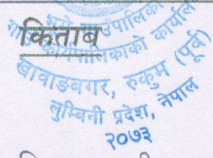 किताब
कार्यपालिकाको कार्यालय
खावाङबगर, रुकुम (पूर्व)
लुम्बिनी प्रदेश, नेपाल
२०७३